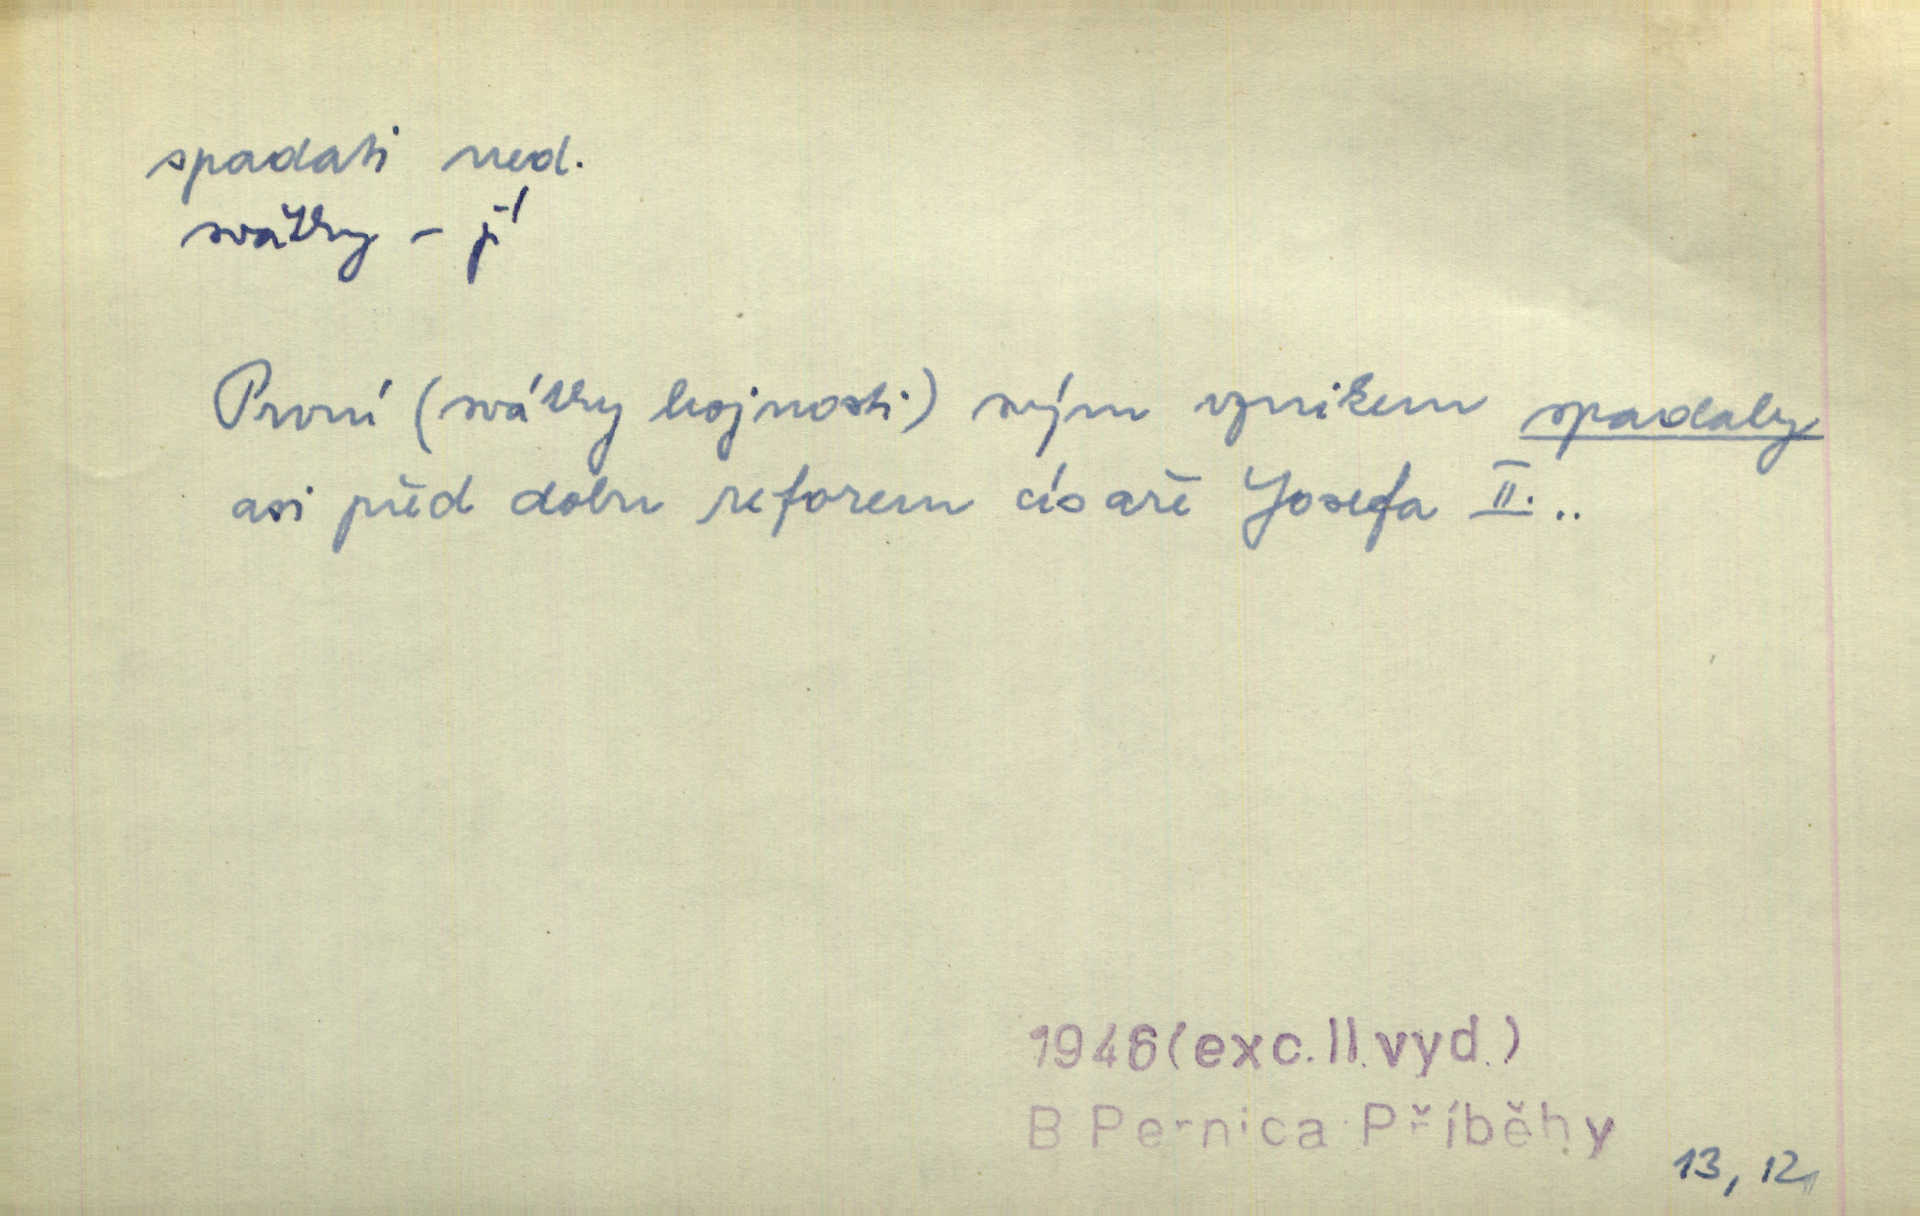 spadati ned.
svátky - jí
První (svátky hojnosti) svým vznikem spadaly
asi před dobu reforem císaře Josefa II...
1946(exc.II.vyd.)
B Pernica Příběhy
13, 12